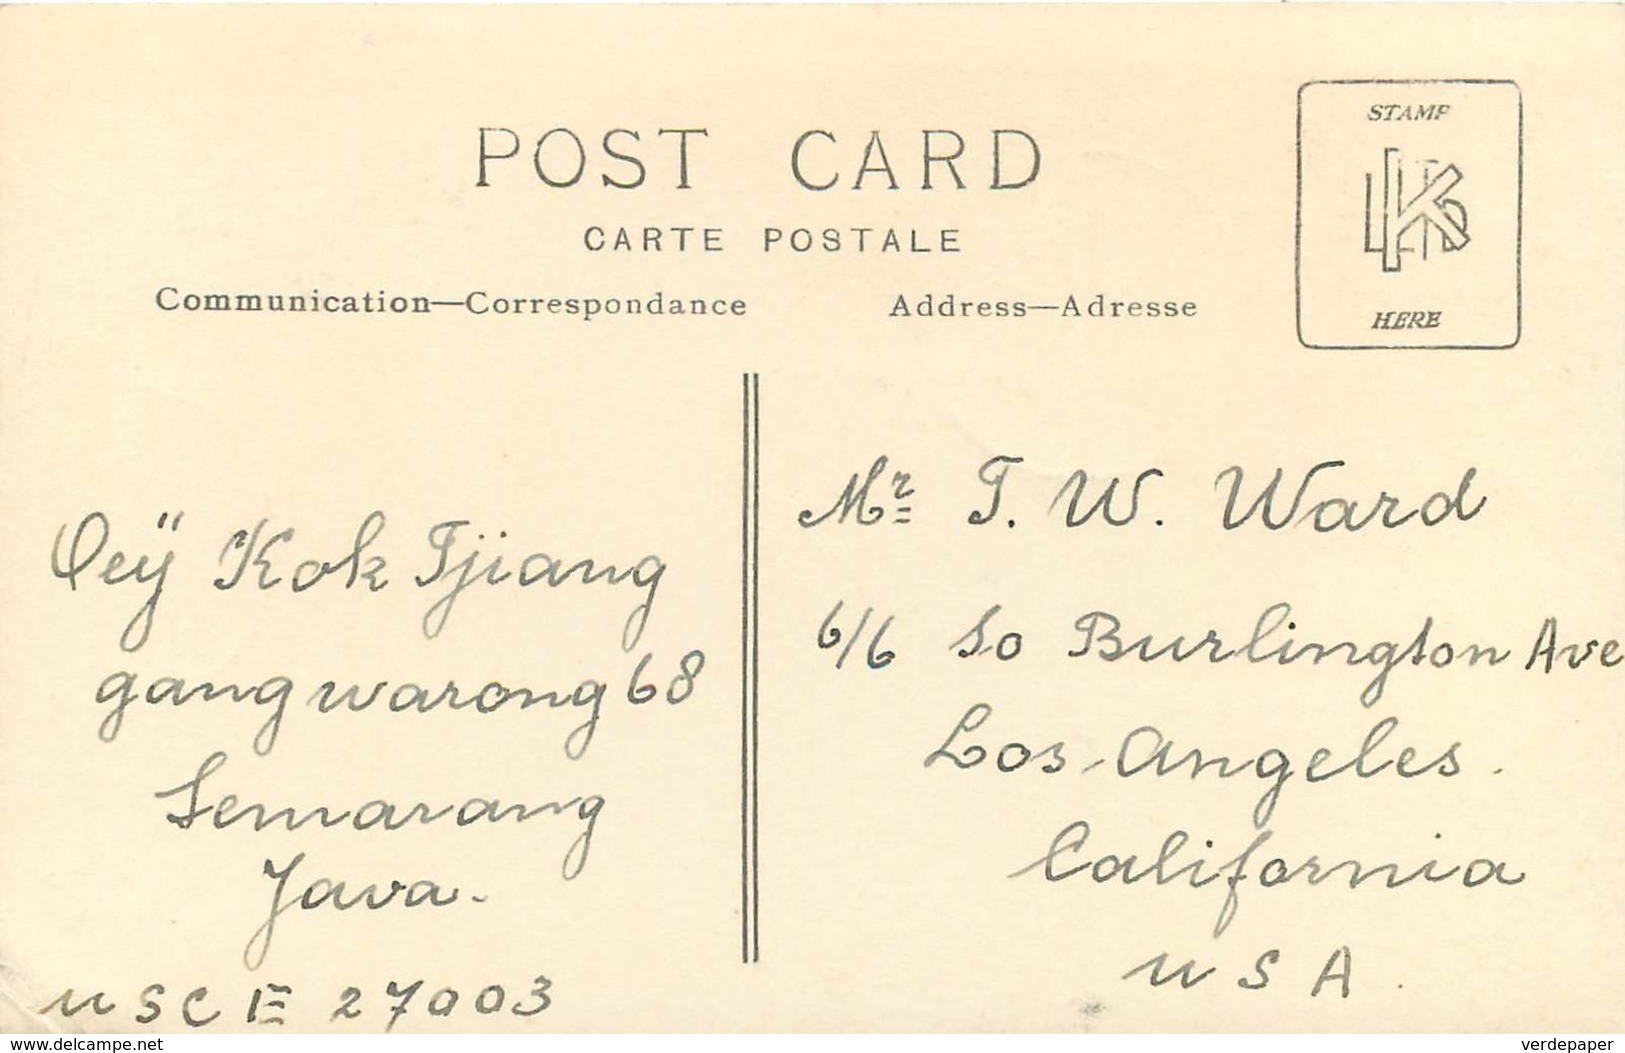 POST CARD
CARTE POSTALE
Communication—Correspondance
Address—Adresse
STAMP
HERE
Oeÿ Kok Tjiang
gang warong 68
Semarang
Java.
USCE 27003
Mr. T. W. Ward
6/6 So Burlington Ave
Los Angeles.
California
USA.
www.delcampe.net
verdepaper